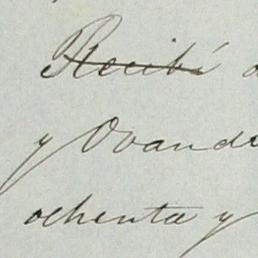 Recibí
y Ovand
ochenta y